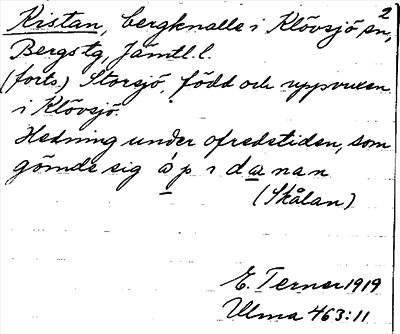 2
Kristan, bergknalle i Klövsjö sn,
Bergstg, Jämtl. l.
(forts.) Storsjö, född och uppvuxen
i Klövsjö.
Hedning under ofredstiden, som
gömde sig å p ı d a n a n
(Skålan)
E. Terner 1919
Ulma 463:11